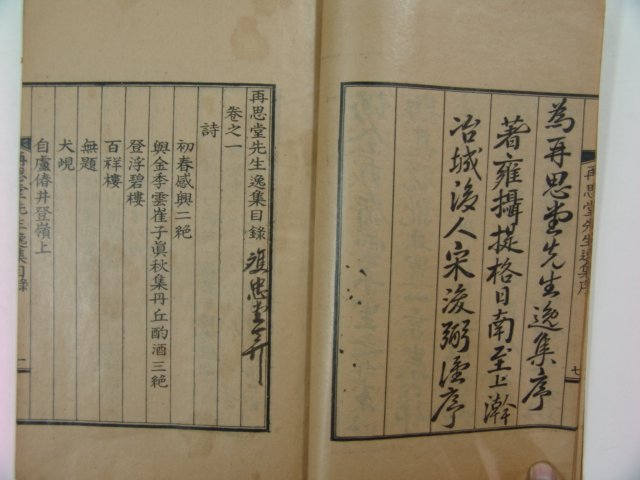 為再思堂先生逸集序
著雍攝提格日南至上澣
冶城後人宋浚弼謹序
再思堂先生逸集序
七
再思堂先生逸集目錄
卷之一
詩
初春感興二絶
與金季雲崔子眞秋集丹丘酌酒三絶
登浮碧樓
百祥樓
無題
犬峴
自盧偆井登嶺上
再思堂先生逸集目錄
一